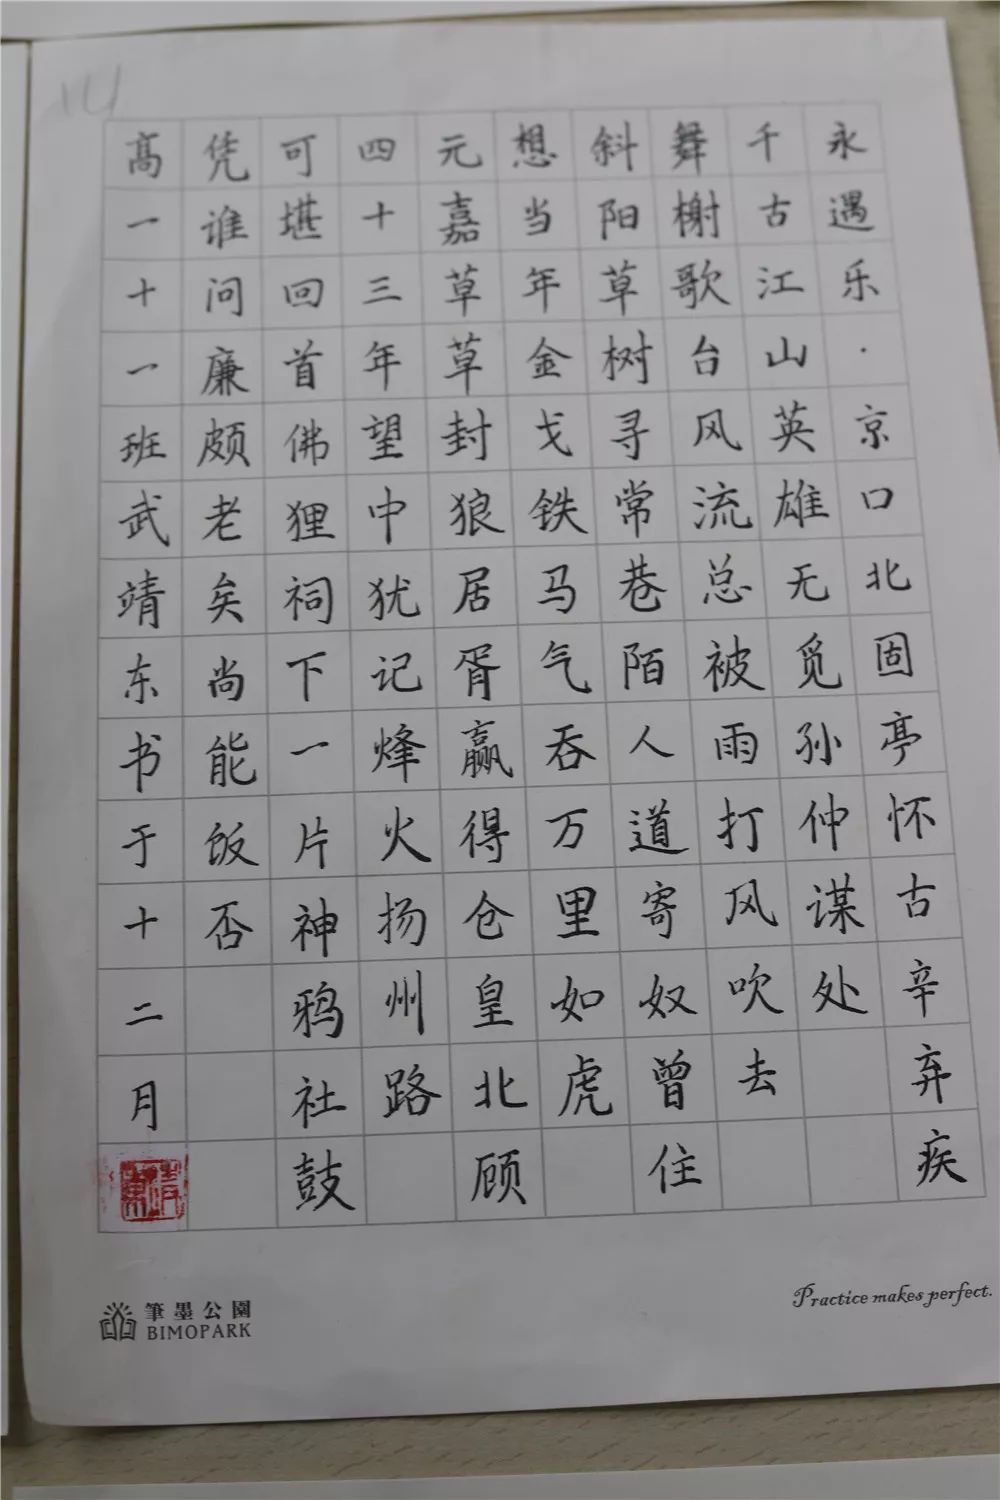 永遇乐·京口北固亭怀古辛弃疾
千古江山英雄无觅孙仲谋处
舞榭歌台风流总被雨打风吹去
斜阳草树寻常巷陌人道寄奴曾住
想当年金戈铁马气吞万里如虎
元嘉草草封狼居胥赢得仓皇北顾
四十三年望中犹记烽火扬州路
可堪回首佛狸祠下一片神鸦社鼓
凭谁问廉颇老矣尚能饭否
高一十一班武靖东书于十二月
筆墨公園
BIMOPARK
Practice makes perfect.